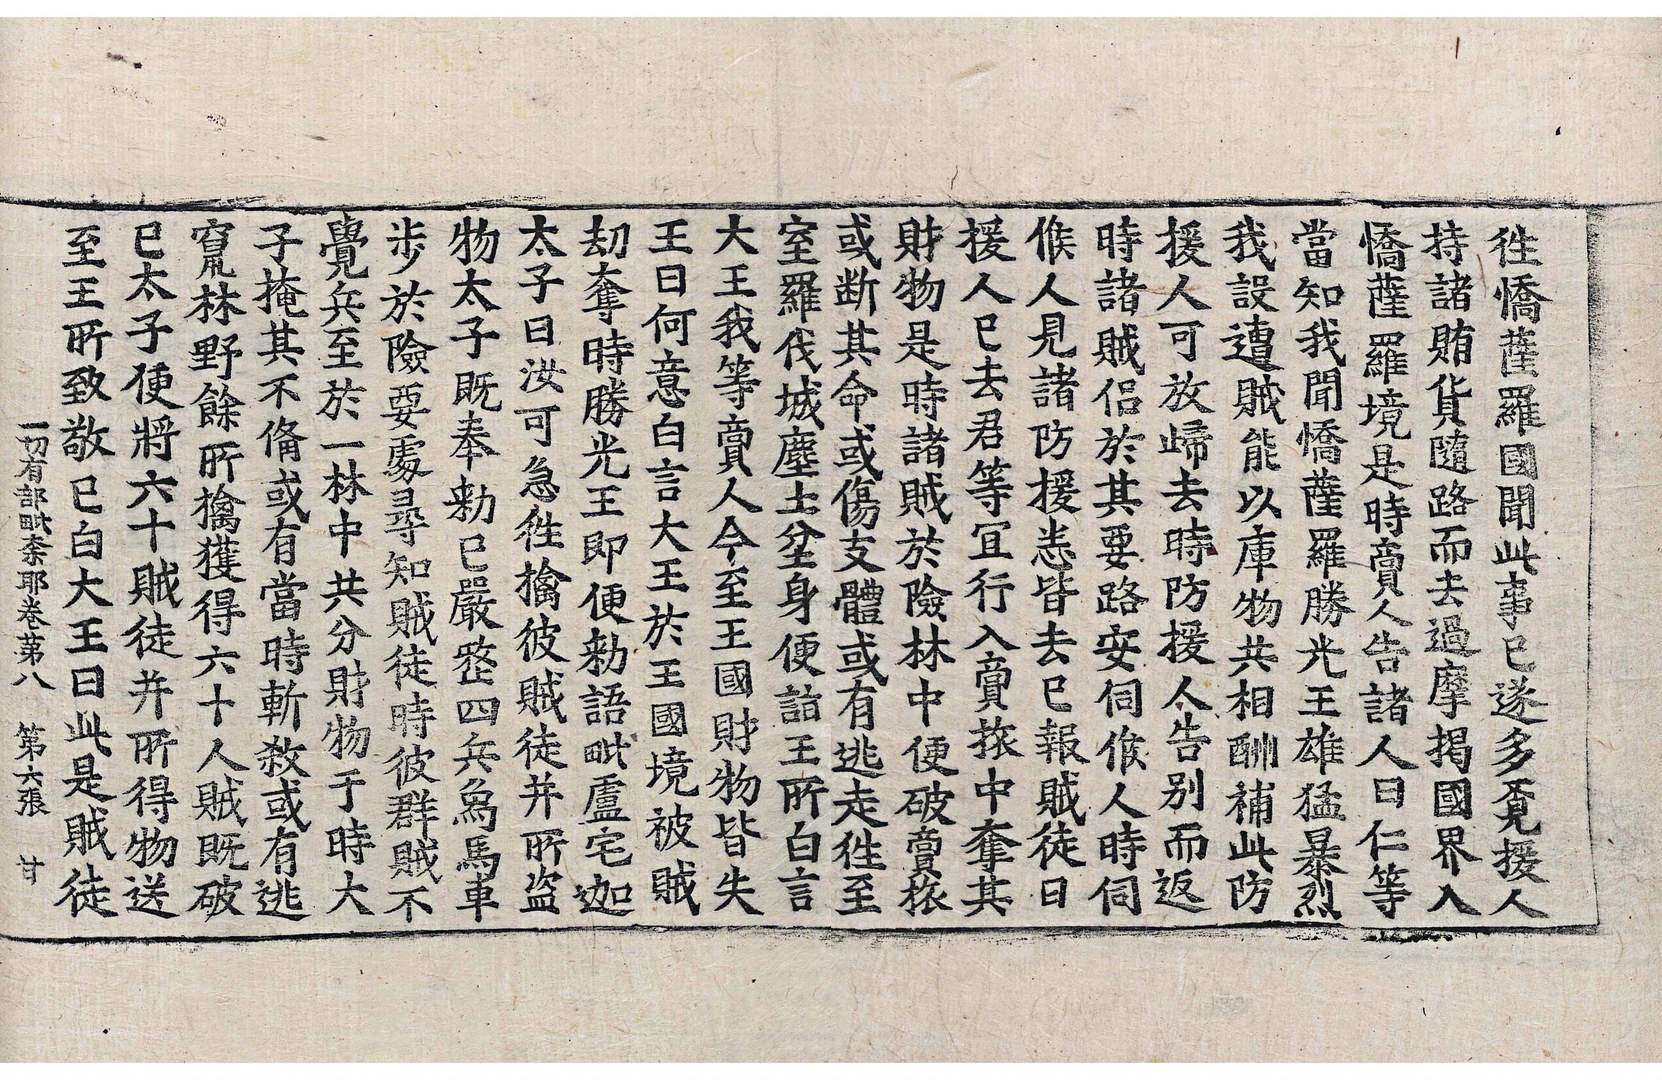 徃憍薩羅國聞此事已遂多覓援人
持諸賄貨隨路而去過摩揭國界入
憍薩羅境是時賣人告諸人曰仁等
當知我聞憍薩羅勝光王雄猛暴烈
我設遭賊能以庫物共相酬補此防
援人可放歸去時防援人告别而返
時諸賊侣於其要路安伺候人時伺
候人見諸防援悉皆去已報賊徒曰
援人已去君等冝行入賣旅中奪其
財物是時諸賊於險林中便破賣旅
或断其命或傷支體或有逃走徃至
室羅伐城塵土坌身便詣王所白言
大王我等賣人今至王國財物皆失
王曰何意白言大王於王國境被賊
劫奪時勝光王即便勑語毗盧宅迦
太子曰汝可急徃擒彼賊徒并所盗
物太子既奉勑已嚴整四兵象馬車
步於險要處尋知賊徒時彼群賊不
覺兵至於一林中共分財物于時大
子掩其不俻或有當時斬殺或有逃
竄林野餘所擒獲得六十人賊既破
已太子便將六十賊徒并所得物送
至王所致敬已白大王曰此是賊徒
一切有部毗柰耶卷第八 第十六張 甘